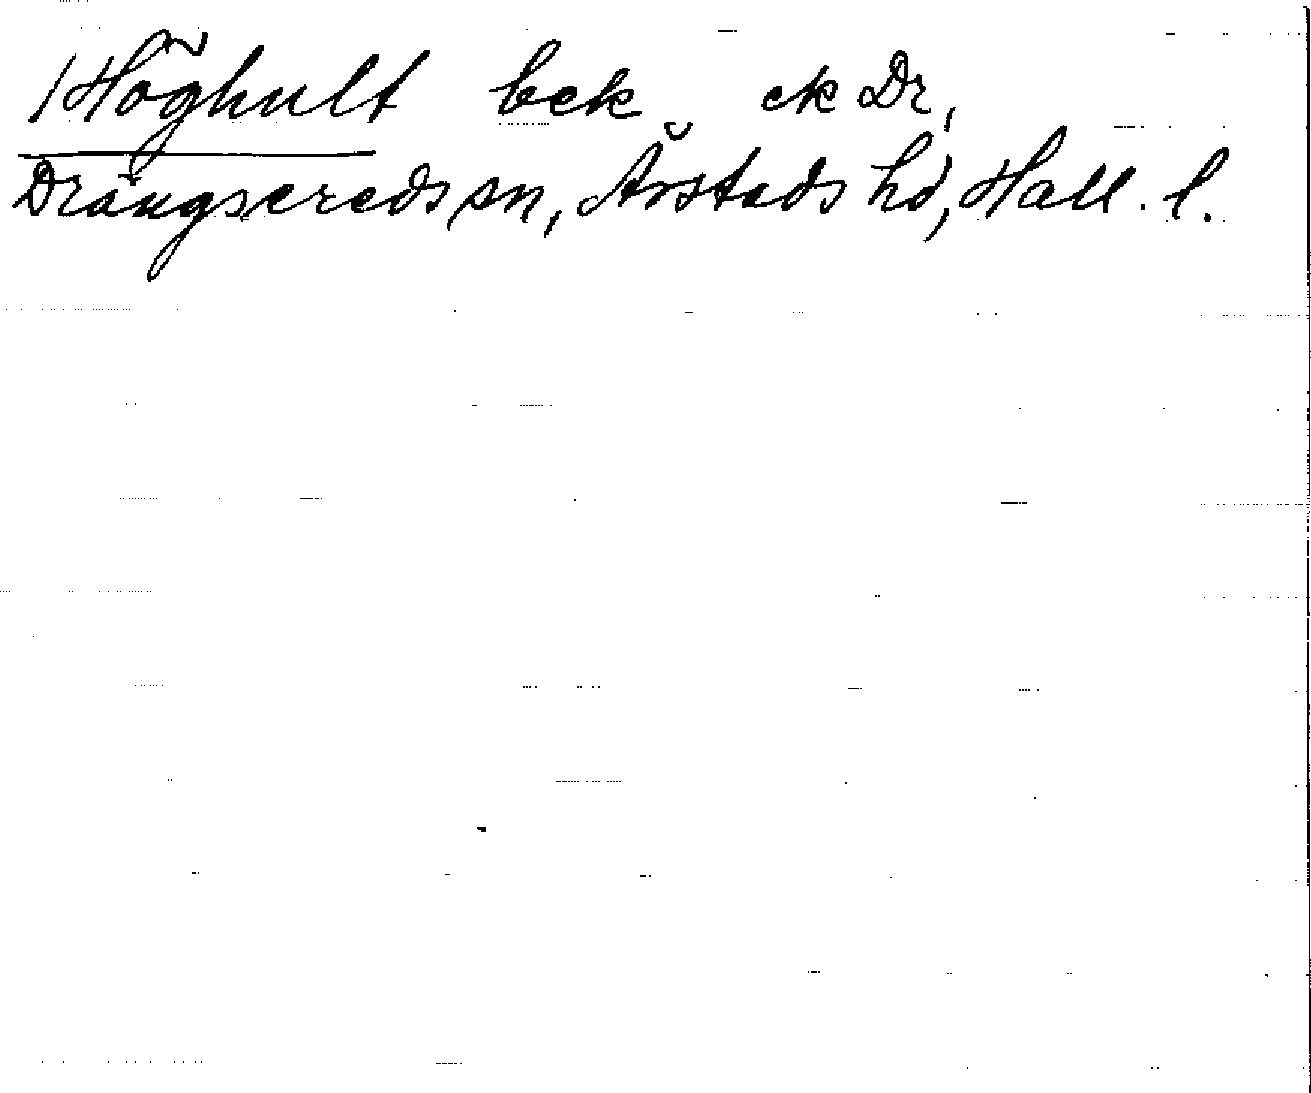 Höghult bek ek Dr,
Drängsereds sn, Årstads hd, Hall. l.